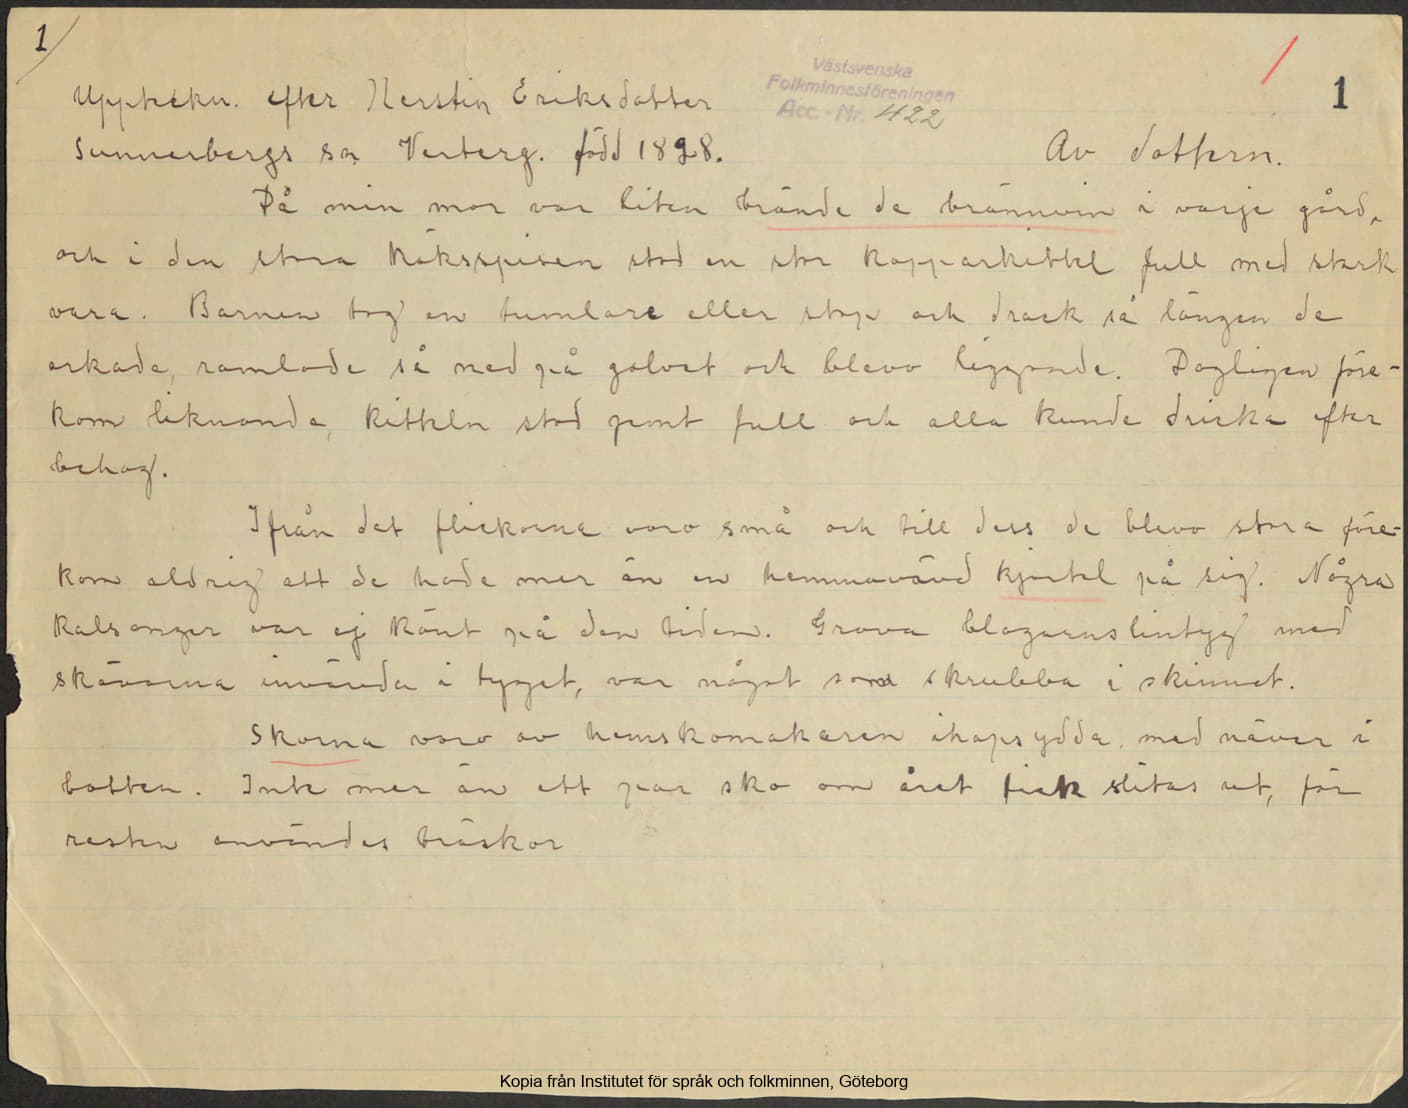 1
1
Västsvenska
Folkminnesföreningen
Acc.-Nr. 422
Uppteckn. efter Kerstin Eriksdotter
Sunnerbergs sn Vesterg. född 1828.
Av dottern.
Då min mor var liten brände de brännvin i varje gård,
och i den stora köksspisen stod en stor kopparkittel full med stark
vara. Barnen tog en tumlare eller stop och drack så längen de
orkade, ramlade så ned på golvet och blevo liggande. Dagligen före-
kom liknande, kitteln stod jemt full och alla kunde dricka efter
behag.
Ifrån det flickorna voro små och till dess de blevo stora före-
kom aldrig att de hade mer än en hemmavävd kjortel på sig. Några
kalsonger var ej känt på den tiden. Grova blagarnslintyg med
skävorna invävda i tyget, var något som skrubba i skinnet.
Skorna voro av hemskomakaren ihopsydda med näver i
botten. Inte mer än ett par sko om året fick slitas ut, för
resten användes träskor
Kopia från Institutet för språk och folkminnen, Göteborg